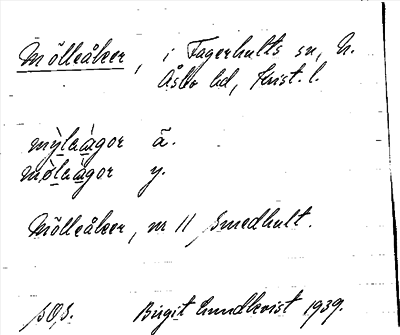 Mölleåker, i Fagerhults sn, N.
Åsbo hd, Krist. l.
mỳlaàgor ä.
mòlaàgor y.
Mölleåker, nr 11 Smedhult.
SOS. Birgit Lundkvist 1939.